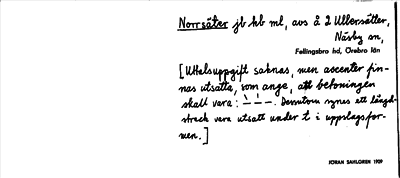 Norrsäter jb kb ml, avs å 2 Ullersätter,
Näsby sn,
Fellingsbro hd, Örebro län
[Uttalsuppgift saknas, men accenter fin-
nas utsatta, som ange, att betoningen
skall vara: –́ –̀ –. Dessutom synes ett längd-
streck vara utsatt under t i uppslagsfor-
men.]
JÖRAN SAHLGREN 1909